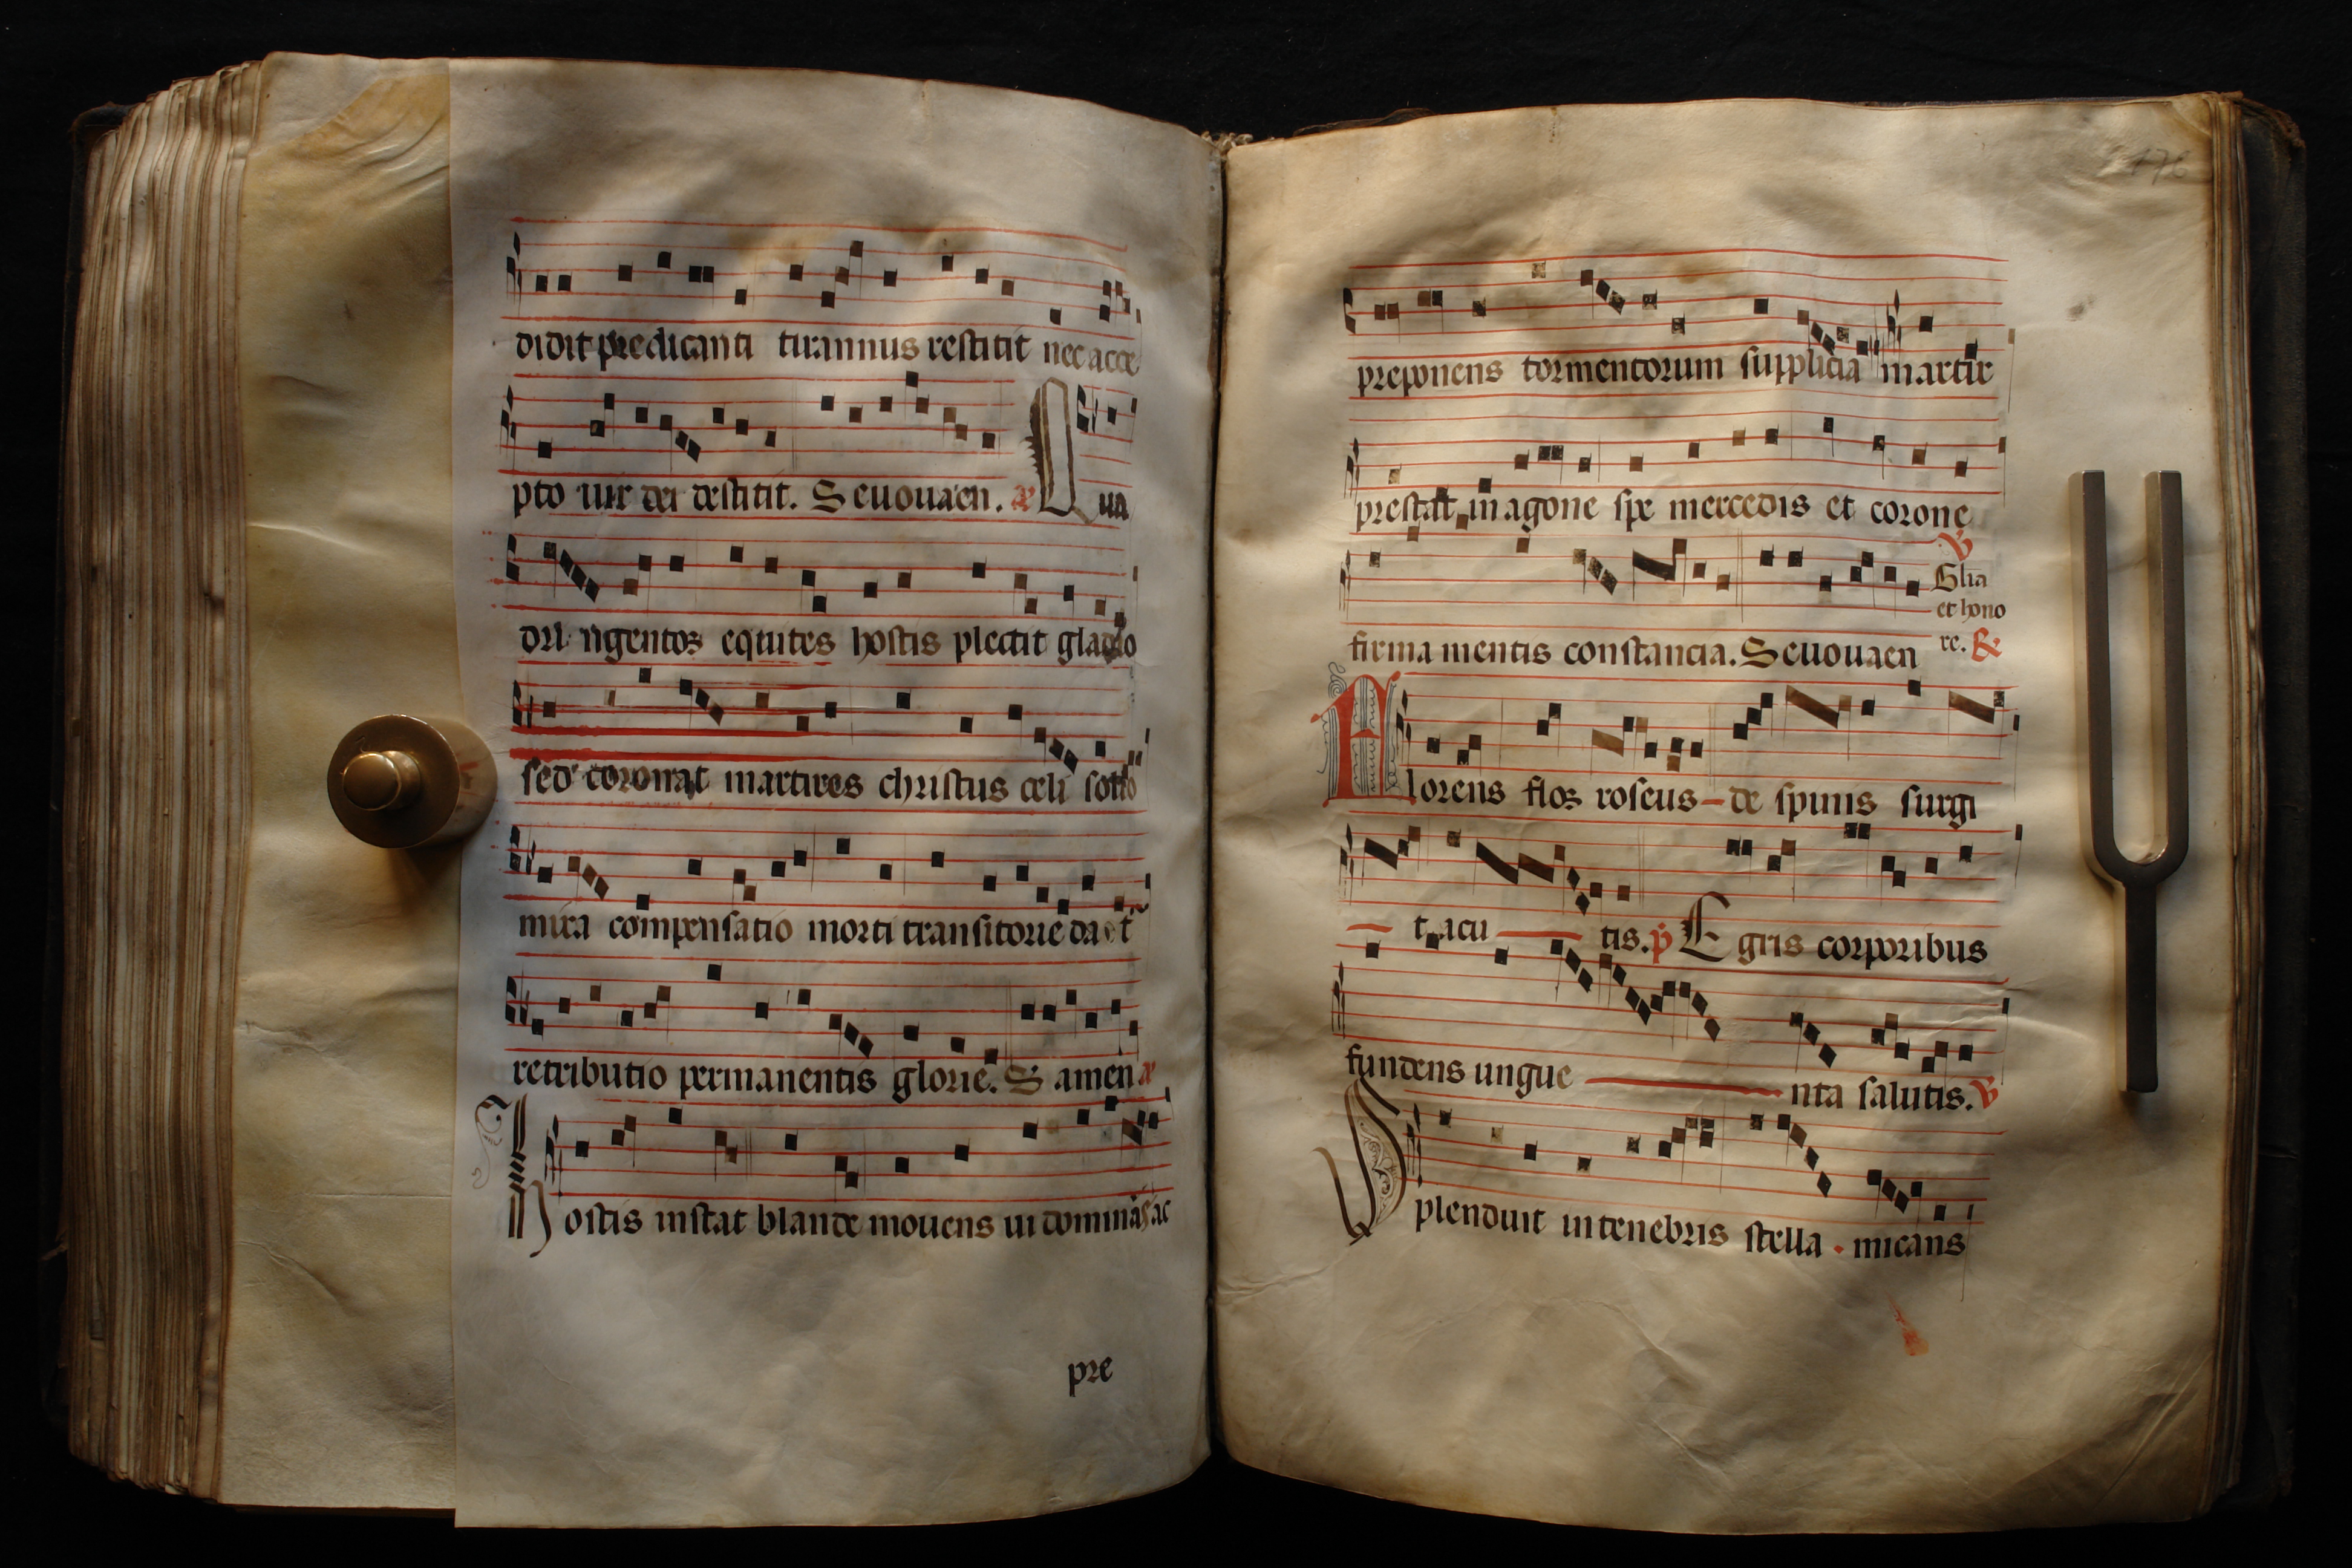 didit predicanti tirannus restitit nec acce
pto uir dei destitit. Seuouaen. Qua
dri ngentos equites hostis plectit gladio
sed coronat martires christus celi solio
mira compensatio morti transitorie da t
retributio permanentis glorie. S amen
Hostis instat blande mouens ui dominas ac
pre
preponens tormentorum supplicia martir
prestat in agone spe mercedis et corone
firma mentis constancia. Seuouaen
Glia
et hono
re.
Florens flos roseus de spinis surgi
t acu tis. Egris corporibus
fundens ungue nta salutis.
Splenduit in tenebris stella . micans